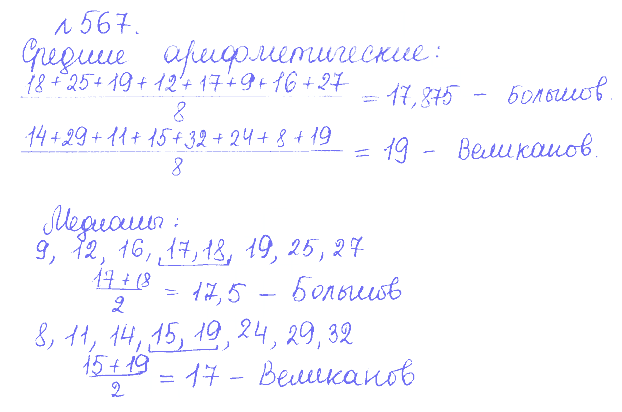 №567.
Средние арифметические:
18+25+19+12+17+9+16+27
8
= 17,875 – Большов.
14+29+11+15+32+24+8+19
8
= 19 – Великанов.
Медианы:
9, 12, 16, 17, 18, 19, 25, 27
17+18
2
= 17,5 – Большов
8, 11, 14, 15, 19, 24, 29, 32
15+19
2
= 17 – Великанов